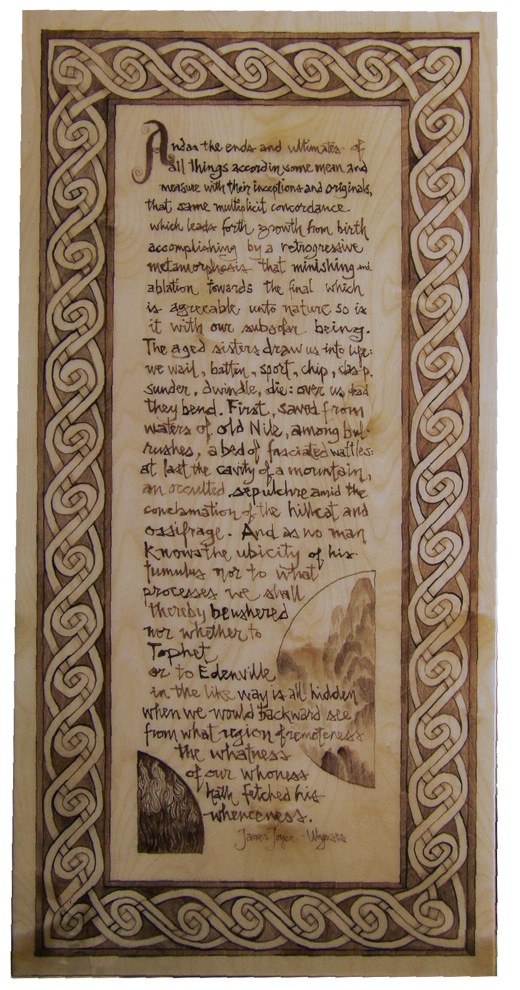 And as the ends and ultimates of
all things accord in some mean and
measure with their inceptions and originals,
that same multiplicit concordance
which leads forth growth from birth
accomplishing by a retrogressive
metamorphosis that minishing and
ablation towards the final which
is agreeable unto nature so is
it with our subsolar being.
The aged sisters draw us into life:
we wail, batten, sport, clip, clasp,
sunder, dwindle, die: over us dead
they bend. First, saved from
waters of old Nile, among bul-
rushes, a bed of fasciated wattles:
at last the cavity of a mountain,
an occulted sepulchre amid the
conclamation of the hillcat and
ossifrage. And as no man
knows the ubicity of his
tumulus nor to what
processes we shall
thereby be ushered
nor whether to
Tophet
or to Edenville
in the like way is all hidden
when we would backward see
from what region of remoteness
the whatness
of our whoness
hath fetched his
whenceness.
James Joyce - Ulysses